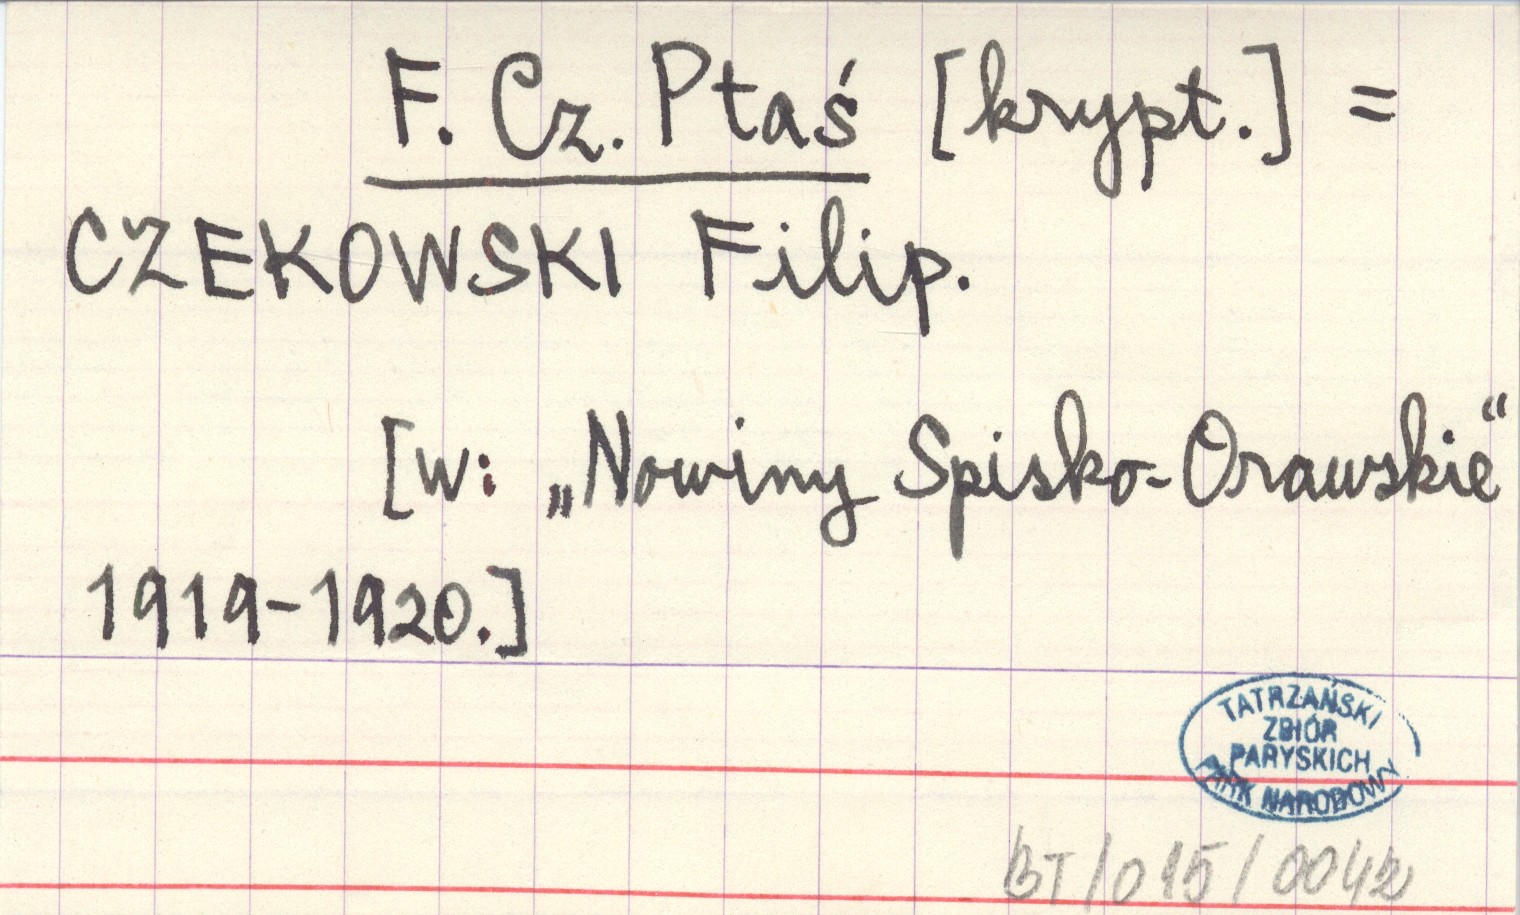 F. Cz. Ptaś [krypt.] =
CZEKOWSKI Filip.
[w: „Nowiny Spisko-Orawskie“
1919-1920.]
TATRZAŃSKI
ZBIÓR
PARYSKICH
PARK NARODOWY
BT/015/0042